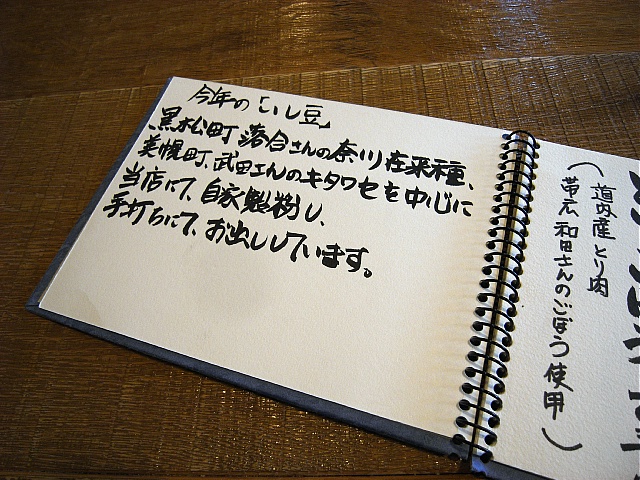 今年の「いし豆」
黒松町 落合さんの奈川在来種、
美幌町、武田さんのキタワセを中心に
当店にて、自家製粉し、
手打ちにて、お出ししています。
道内産とり肉
帯広 和田さんのごぼう使用